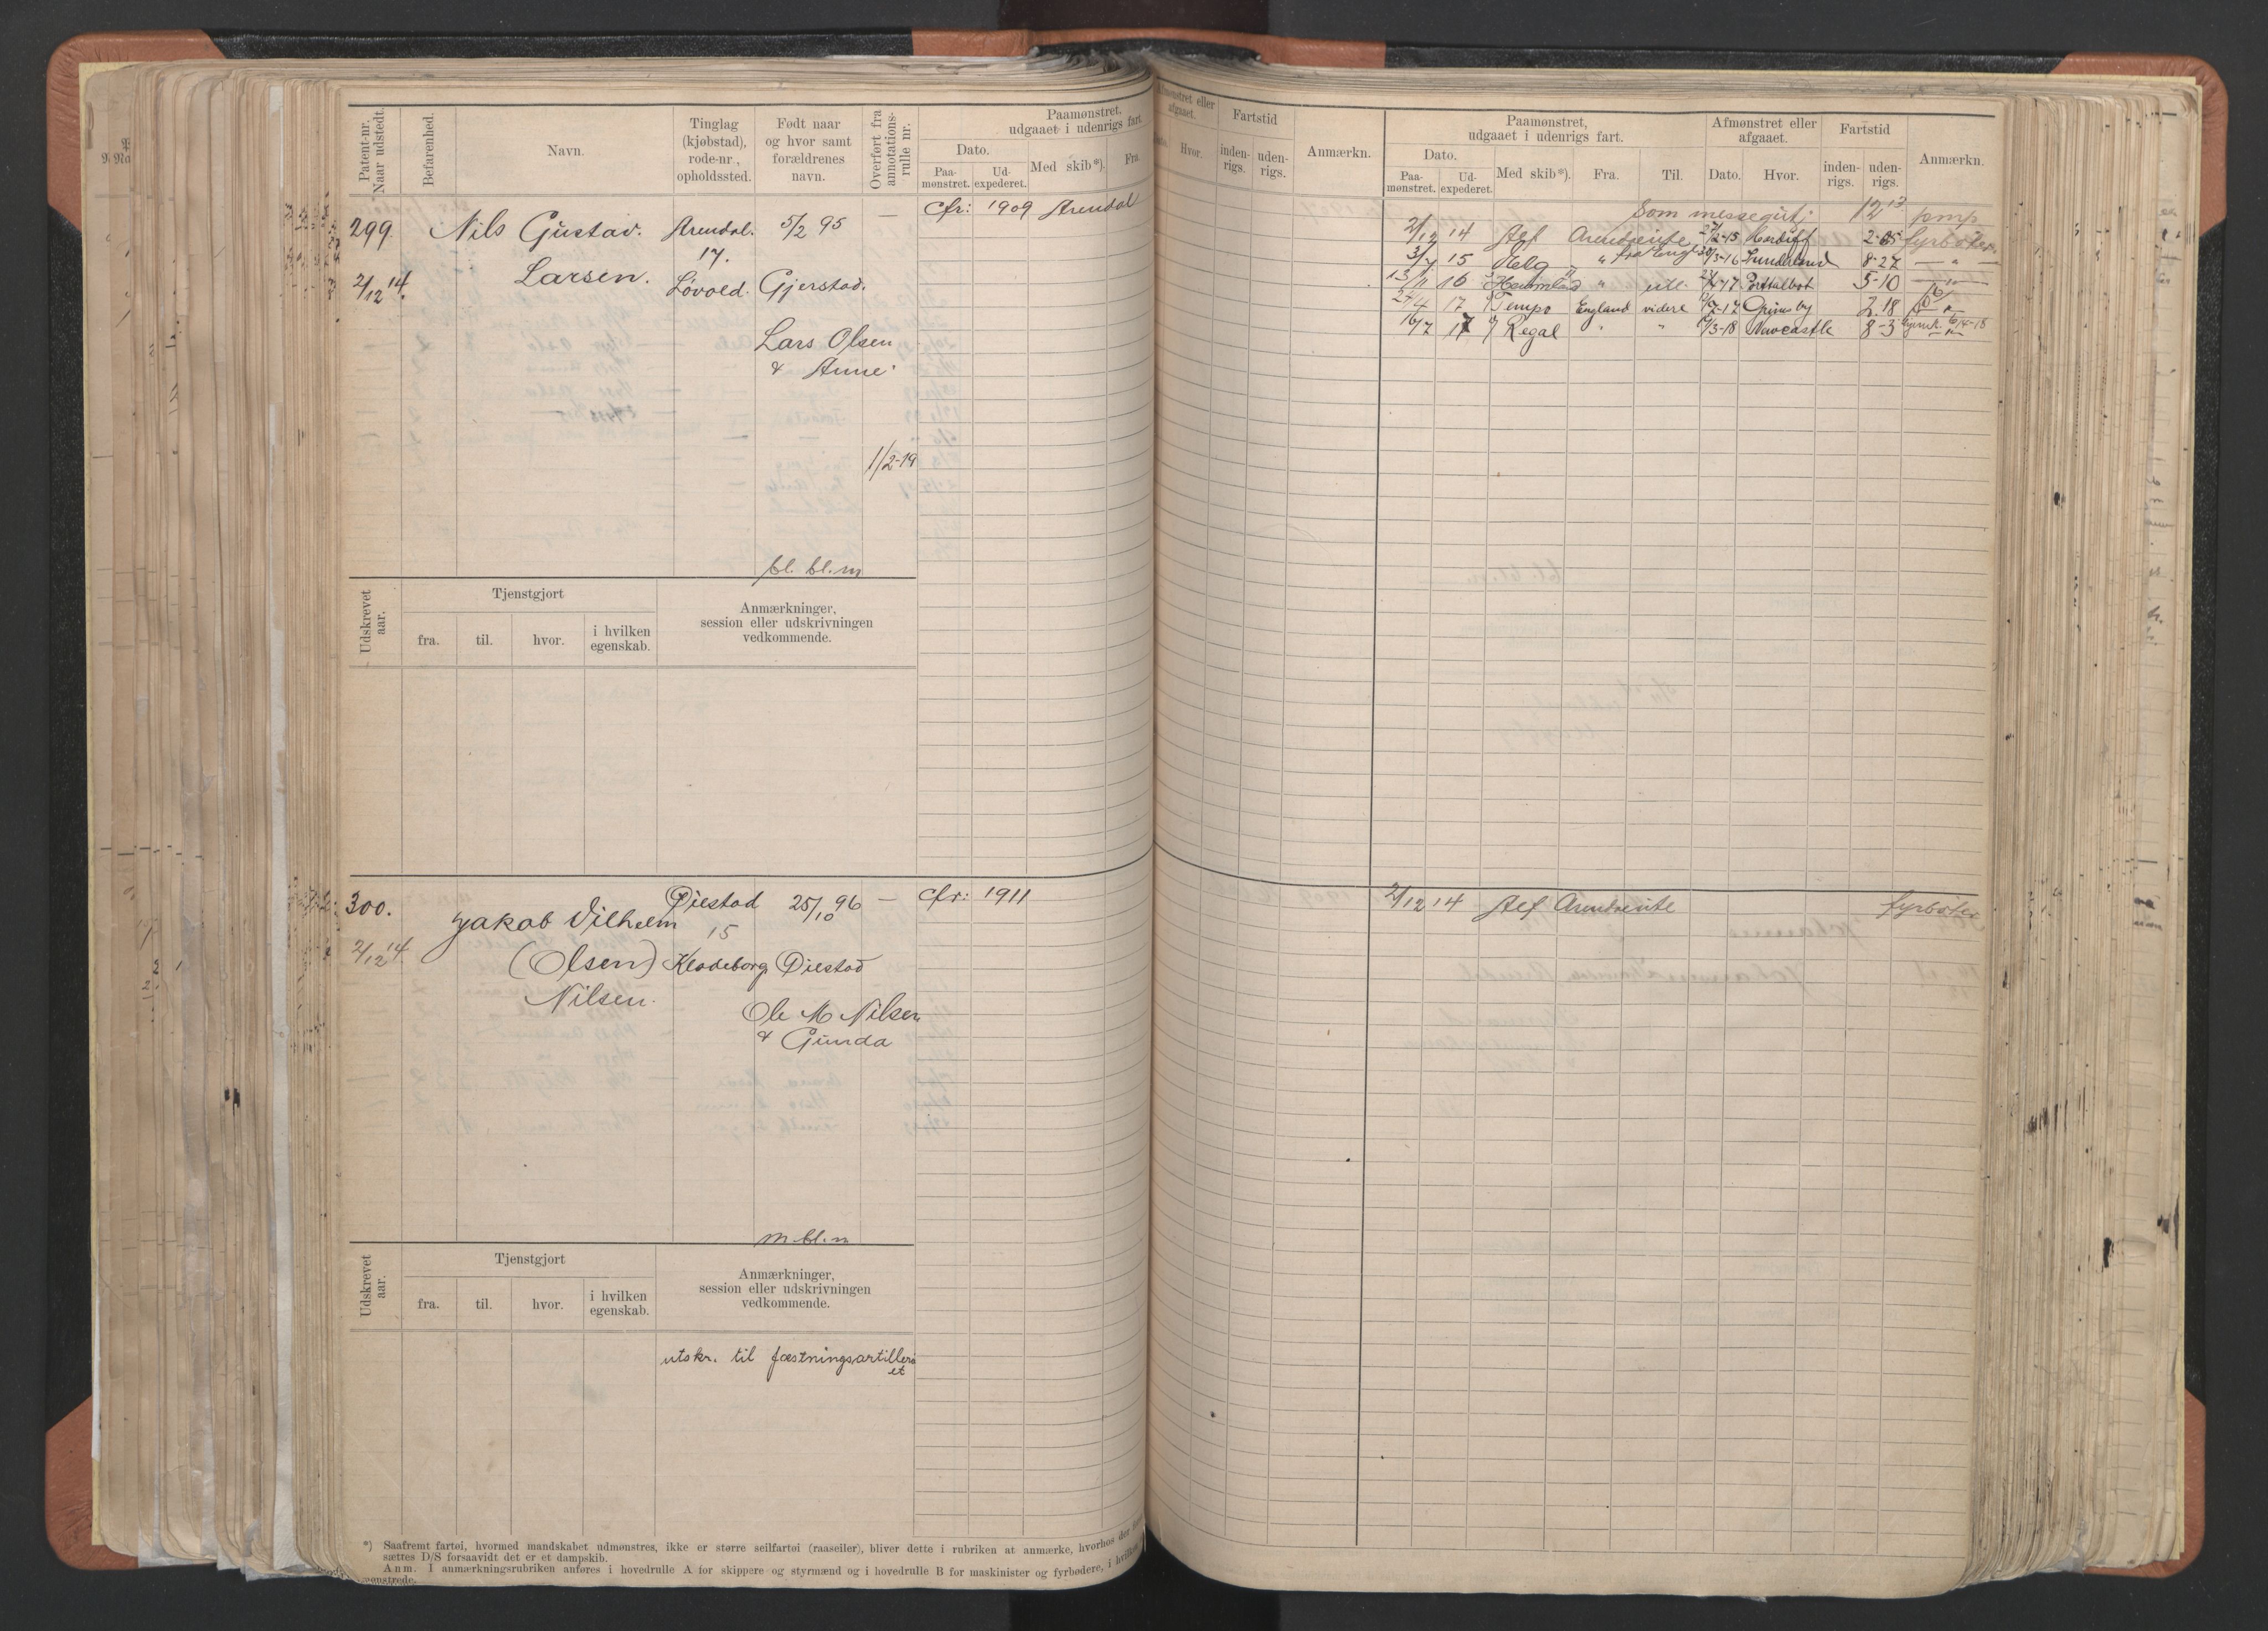 Patent-nr. Naar udstedt.
Befarenhed.
Navn.
Tinglag (kjøbstad), rode-nr, opholdssted.
Født naar og hvor samt forældrenes navn.
Overført fra annotations-rulle nr.
Paamønstret, udgaaet i udenrigs fart
Dato.
Paa-mønstret.
Ud-expederet.
Med skib*).
Fra.
299.
2/12 14.
Nils Gustav.
Larsen.
Arendal.
17.
Løvold.
5/2 95
Gjerstad.
Lars Olsen
& Anne
—
1/2-19
cfr: 1909 Arendal
bl. bl. m
Udskrevet aar.
Tjenstgjort
fra.
til.
hvor.
i hvilken egenskab.
Anmærkninger, session eller udskrivningen vedkommende.
300.
2/12 14
Jakob Vilhelm
(Olsen)
Nilsen.
Øiestad
15
Klodeborg
25/10 96
Øiestad
Ole M Nilsen
& Gunda
—
cfr: 1911
m bl. m
Udskrevet aar.
Tjenstgjort
fra.
til.
hvor.
i hvilken egenskab.
Anmærkninger, session eller udskrivningen vedkommende.
utskr. til fæstningsartilleri
et
*) Saafremt fartøi, hvormed mandskabet udmønstres, ikke er større seilfartøi (raaseiler), bliver dette i rubriken at anmærke, hvorhos der
sættes D/S forsaavidt det er et dampskib.
Anm. I anmærkningsrubriken anføres i hovedrulle A for skippere og styrmænd og i hovedrulle B for maskinister og fyrbødere, i hvilken
mønstrede.
Afmønstret eller afgaaet.
Hvor.
Fartstid
inden-rigs.
uden-rigs.
Anmærkn.
Paamønstret, udgaaet i udenrigs fart.
Dato.
Paa-mønstret.
Ud-expederet.
Med skib*).
Fra.
Til.
Afmønstret eller afgaaet.
Dato.
Hvor.
Fartstid
inden-rigs.
uden-rigs.
Anmærkn.
Som messegut:
2/12 14 Alf
fyrbøter
3/7 15 Helg
3-16 8-27 — " —
13/11 16 " 17 5-10 — " —
24/4 17 Tempo England videre 17 Grimsby 2.18
16/7 17 Regal " " 3-18 Newcastle 8-3
2/12 14 Alf fyrbøter